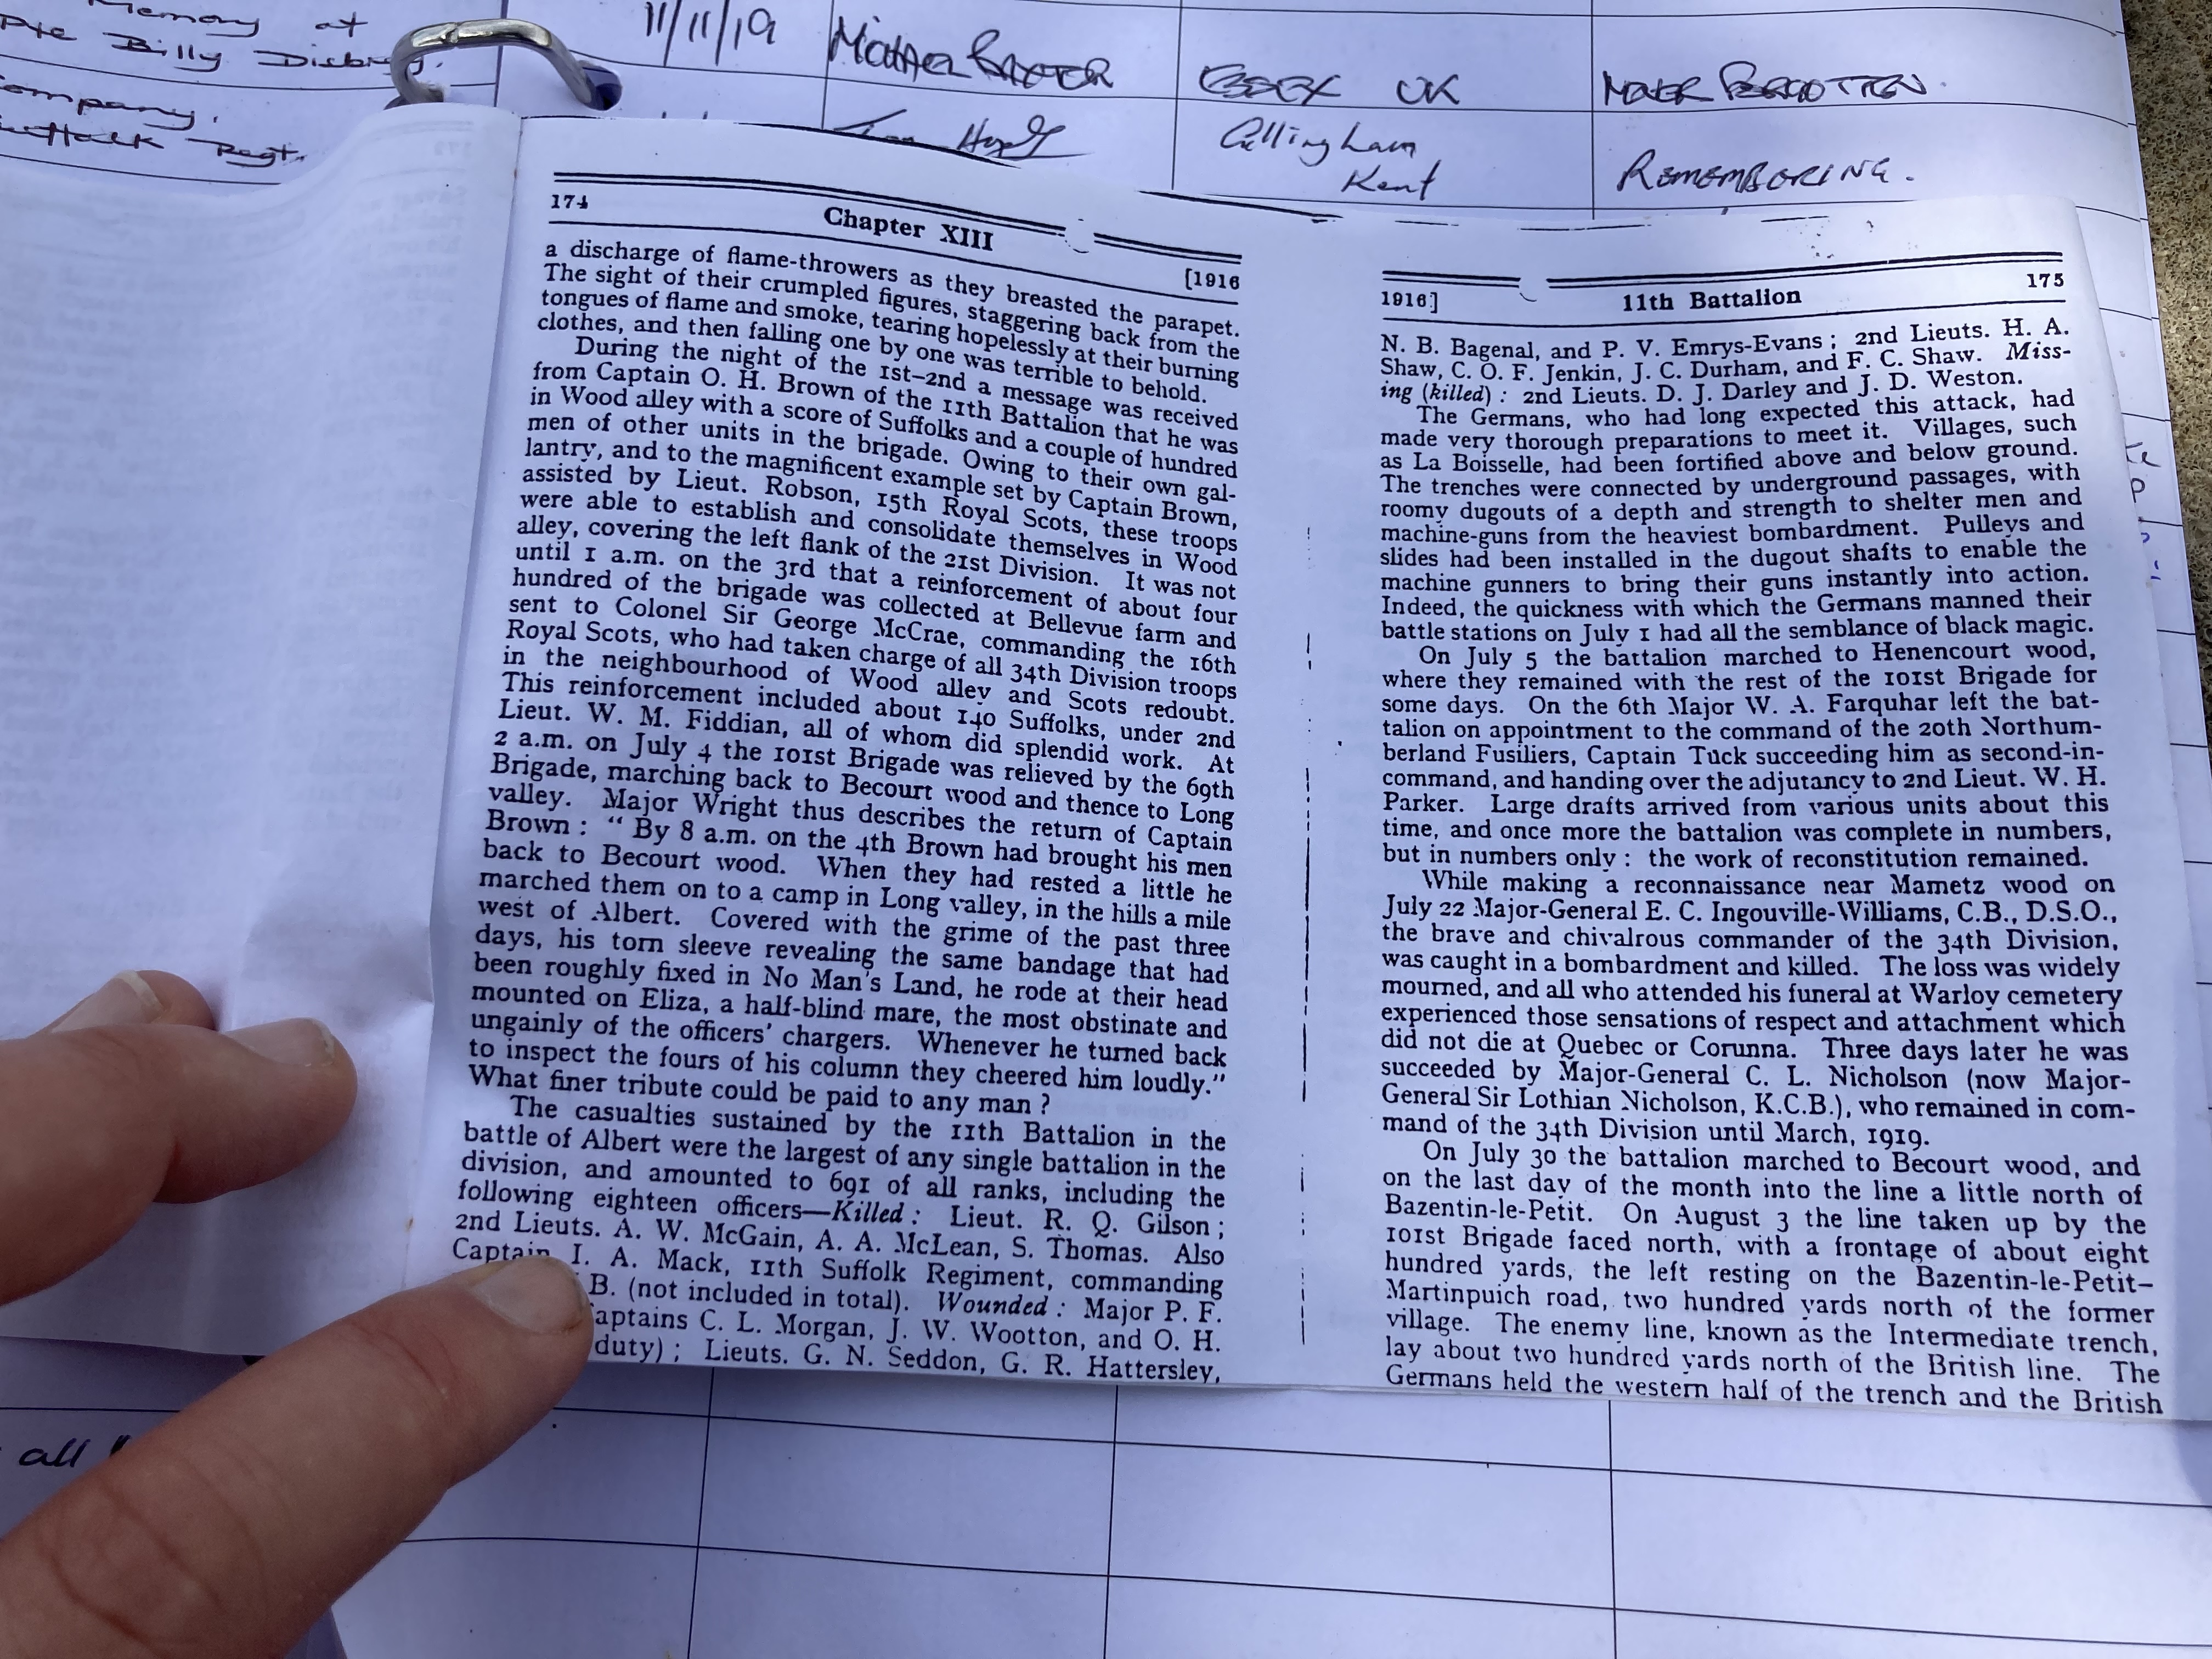 Memory at
Pte Billy
Company.
Regt.
11/11/19
ESSEX UK
NEVER FORGOTTEN.
Gillingham
Kent
REMEMBERING.
174
Chapter XIII
[1916
a discharge of flame-throwers as they breasted the parapet.
The sight of their crumpled figures, staggering back from the
tongues of flame and smoke, tearing hopelessly at their burning
clothes, and then falling one by one was terrible to behold.
During the night of the 1st–2nd a message was received
from Captain O. H. Brown of the 11th Battalion that he was
in Wood alley with a score of Suffolks and a couple of hundred
men of other units in the brigade. Owing to their own gal-
lantry, and to the magnificent example set by Captain Brown,
assisted by Lieut. Robson, 15th Royal Scots, these troops
were able to establish and consolidate themselves in Wood
alley, covering the left flank of the 21st Division. It was not
until 1 a.m. on the 3rd that a reinforcement of about four
hundred of the brigade was collected at Bellevue farm and
sent to Colonel Sir George McCrae, commanding the 16th
Royal Scots, who had taken charge of all 34th Division troops
in the neighbourhood of Wood alley and Scots redoubt.
This reinforcement included about 140 Suffolks, under 2nd
Lieut. W. M. Fiddian, all of whom did splendid work. At
2 a.m. on July 4 the 101st Brigade was relieved by the 69th
Brigade, marching back to Becourt wood and thence to Long
valley. Major Wright thus describes the return of Captain
Brown : “ By 8 a.m. on the 4th Brown had brought his men
back to Becourt wood. When they had rested a little he
marched them on to a camp in Long valley, in the hills a mile
west of Albert. Covered with the grime of the past three
days, his torn sleeve revealing the same bandage that had
been roughly fixed in No Man's Land, he rode at their head
mounted on Eliza, a half-blind mare, the most obstinate and
ungainly of the officers' chargers. Whenever he turned back
to inspect the fours of his column they cheered him loudly.”
What finer tribute could be paid to any man ?
The casualties sustained by the 11th Battalion in the
battle of Albert were the largest of any single battalion in the
division, and amounted to 691 of all ranks, including the
following eighteen officers—Killed : Lieut. R. Q. Gilson ;
2nd Lieuts. A. W. McGain, A. A. McLean, S. Thomas. Also
Captain I. A. Mack, 11th Suffolk Regiment, commanding
B. (not included in total). Wounded : Major P. F.
aptains C. L. Morgan, J. W. Wootton, and O. H.
duty) ; Lieuts. G. N. Seddon, G. R. Hattersley,
1916]
11th Battalion
175
N. B. Bagenal, and P. V. Emrys-Evans ; 2nd Lieuts. H. A.
Shaw, C. O. F. Jenkin, J. C. Durham, and F. C. Shaw. Miss-
ing (killed) : 2nd Lieuts. D. J. Darley and J. D. Weston.
The Germans, who had long expected this attack, had
made very thorough preparations to meet it. Villages, such
as La Boisselle, had been fortified above and below ground.
The trenches were connected by underground passages, with
roomy dugouts of a depth and strength to shelter men and
machine-guns from the heaviest bombardment. Pulleys and
slides had been installed in the dugout shafts to enable the
machine gunners to bring their guns instantly into action.
Indeed, the quickness with which the Germans manned their
battle stations on July 1 had all the semblance of black magic.
On July 5 the battalion marched to Henencourt wood,
where they remained with the rest of the 101st Brigade for
some days. On the 6th Major W. A. Farquhar left the bat-
talion on appointment to the command of the 20th Northum-
berland Fusiliers, Captain Tuck succeeding him as second-in-
command, and handing over the adjutancy to 2nd Lieut. W. H.
Parker. Large drafts arrived from various units about this
time, and once more the battalion was complete in numbers,
but in numbers only : the work of reconstitution remained.
While making a reconnaissance near Mametz wood on
July 22 Major-General E. C. Ingouville-Williams, C.B., D.S.O.,
the brave and chivalrous commander of the 34th Division,
was caught in a bombardment and killed. The loss was widely
mourned, and all who attended his funeral at Warloy cemetery
experienced those sensations of respect and attachment which
did not die at Quebec or Corunna. Three days later he was
succeeded by Major-General C. L. Nicholson (now Major-
General Sir Lothian Nicholson, K.C.B.), who remained in com-
mand of the 34th Division until March, 1919.
On July 30 the battalion marched to Becourt wood, and
on the last day of the month into the line a little north of
Bazentin-le-Petit. On August 3 the line taken up by the
101st Brigade faced north, with a frontage of about eight
hundred yards, the left resting on the Bazentin-le-Petit–
Martinpuich road, two hundred yards north of the former
village. The enemy line, known as the Intermediate trench,
lay about two hundred yards north of the British line. The
Germans held the western half of the trench and the British
all